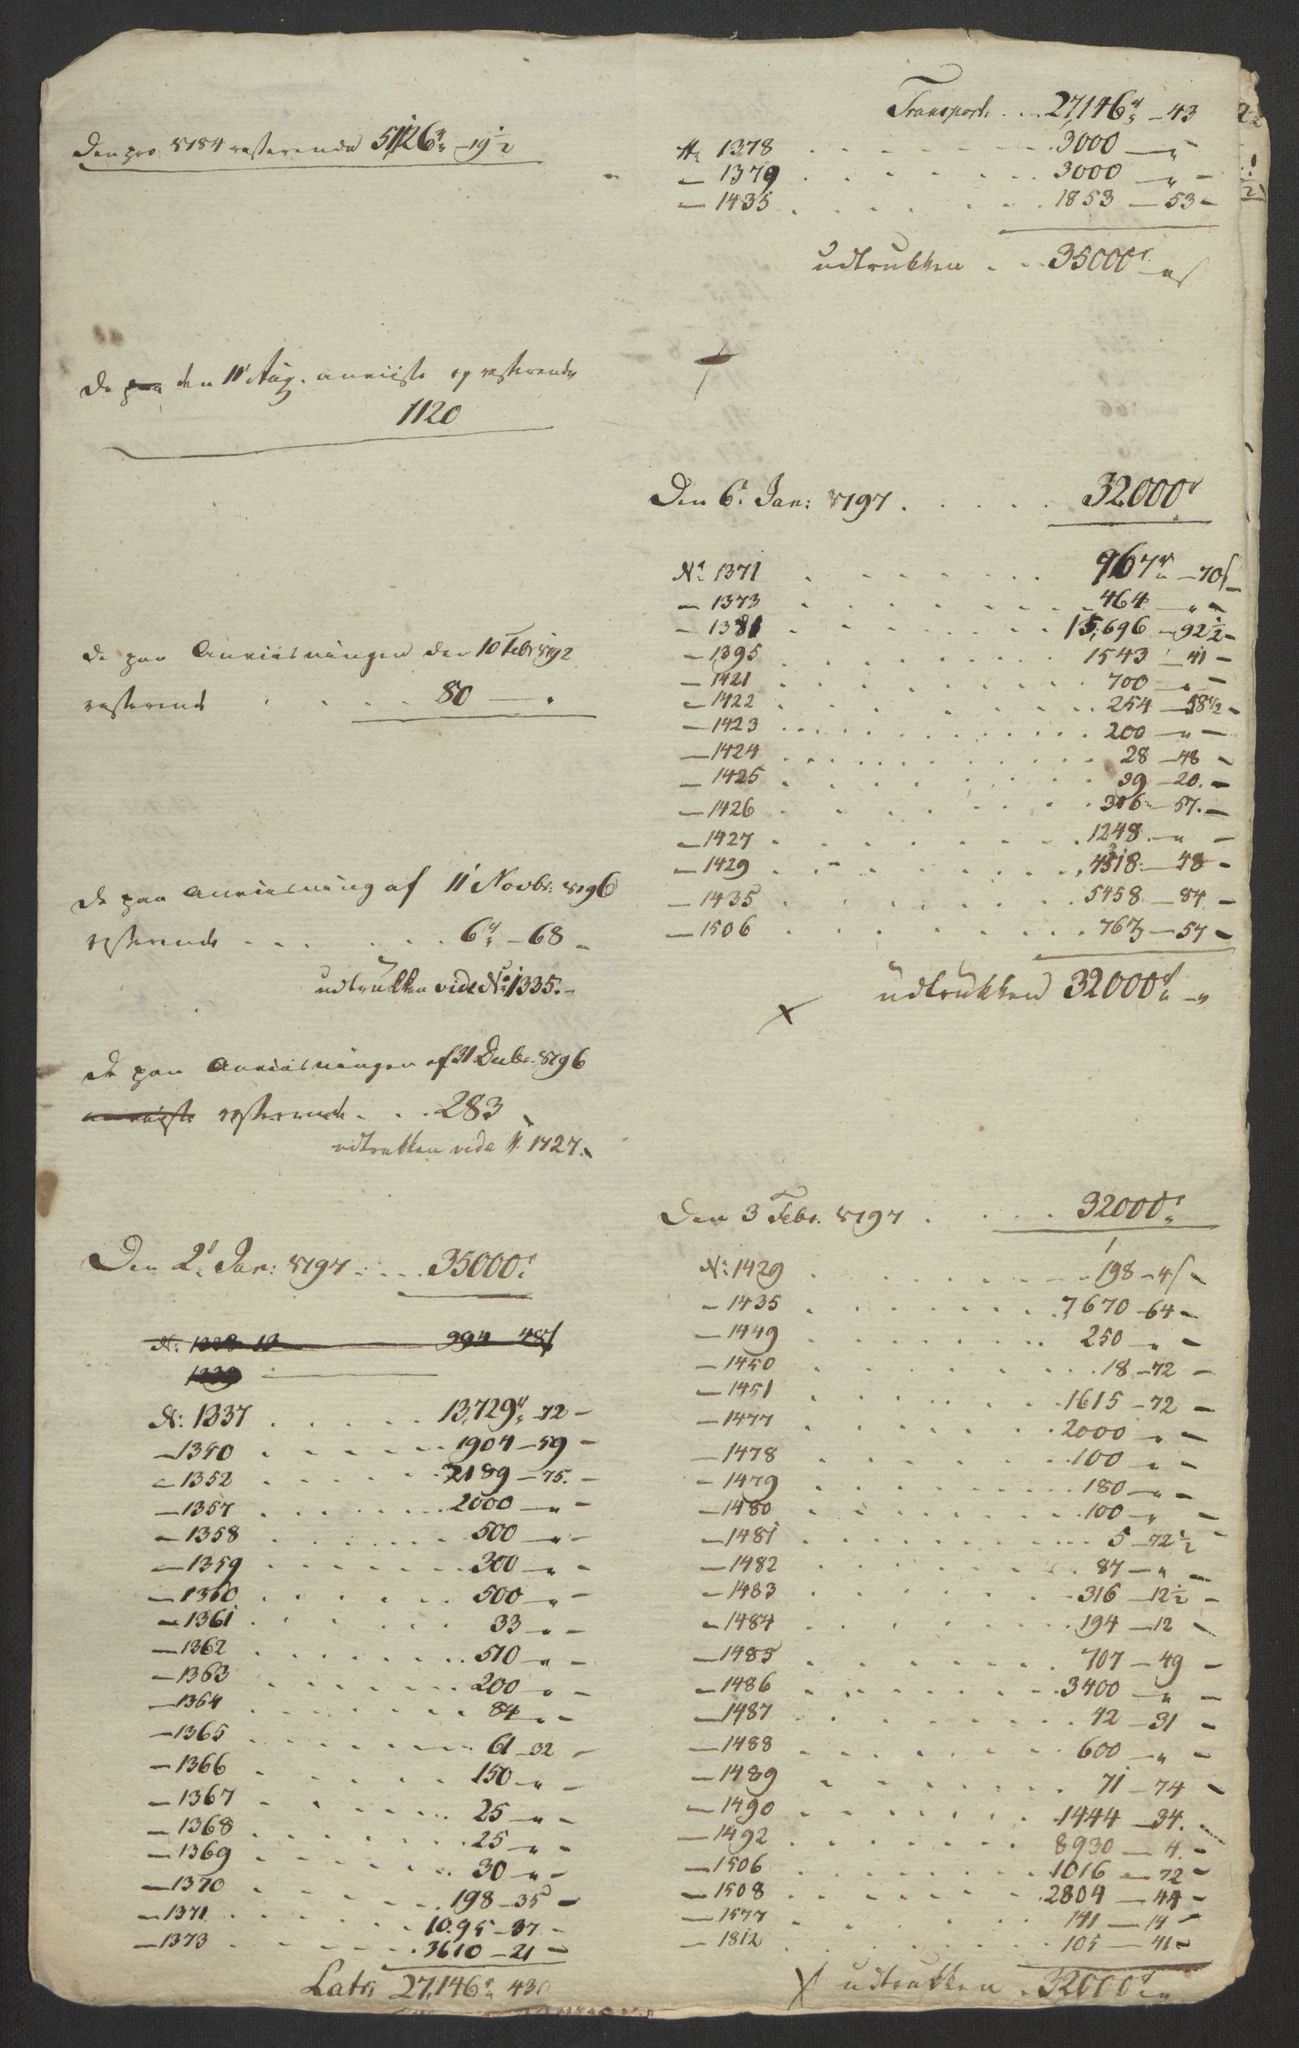 Den pro 8184 resterende 51,126 r. - 19½
De paa den 11' Aug. anviiste og resterende
1120
De paa Anviisningen den 10 Febr. 8192
resterende . . . . 80 — "
De paa Anviisning af 11' Novbr. 8196
resterende . . . . 6 r. - 68 -
udtrukken vide No. 1335. -
De paa Anviisningen af 31 Decbr. 8196
anviiste resterende . . . 283
udtrukken vide N. 1727.
Den 2' Jan: 8197 . . . . 35000 r.
N: 1338 12 — 994 48 s
1339 —
N: 1337 . . . . 13,729 r. - 72 -
— 1350 . . . . 1904 - 59 -
— 1352 . . . . 2189 - 75. -
— 1357 . . . . 2000 — " -
— 1358 . . . . 500 — " -
— 1359 . . . . 300 — " -
— 1360 . . . . 500 — " -
— 1361 . . . . 33 — " -
— 1362 . . . . 510 — " -
— 1363 . . . . 200 — " -
— 1364 . . . . 84 — " -
— 1365 . . . . 61 - 32 -
— 1366 . . . . 150 — " -
— 1367 . . . . 25 — " -
— 1368 . . . . 25 — " -
— 1369 . . . . 30 — " -
— 1370 . . . . 198 - 35 -
— 1371 . . . . 1095 - 37 -
— 1373 . . . . 3610 - 21 -
Latr. 27,146 r. 43
Transport . . . 27,146 r. - 43
N. 1378 . . . . 3000 — "
— 1379 . . . . 3000 — " -
— 1435 . . . . 1853 — 53 -
udtrukken . . 35000 r. — " s
Den 6' Jan: 8197 . . . . 32000 r
No. 1371 . . . . 967 r. - 70 s -
— 1373 . . . . 464 — " -
— 1381 . . . . 15,696 - 92½ -
— 1395 . . . . 1543 - 41 -
— 1421 . . . . 700 — " -
— 1422 . . . . 254 — 58½ -
— 1423 . . . . 200 — " -
— 1424 . . . . 28 - 48 -
— 1425 . . . . 39 - 20. -
— 1426 . . . . 316 - 57. -
— 1427 . . . . 1248 — " -
— 1429 . . . . 4318 - 48 -
— 1435 . . . . 5458 - 84. -
— 1506 . . . . 763 - 57 -
udtrukken 32000 r. - "
Den 3 Febr. 8197 . . . . 32000 r.
N: 1429 . . . . 198 - 4 s -
— 1435 . . . . 7,670 - 64 -
— 1449 . . . . 250 — " -
— 1450 . . . . 18 - 72 -
— 1451 . . . . 1615 - 72 -
— 1477 . . . . 2000 — " -
— 1478 . . . . 100 — " -
— 1479 . . . . 180 — " -
— 1480 . . . . 100 — " -
— 1481 . . . . 5 - 72½ -
— 1482 . . . . 87 — " -
— 1483 . . . . 316 - 12½ -
— 1484 . . . . 194 - 12 -
— 1485 . . . . 707 - 49 -
— 1486 . . . . 3400 — " -
— 1487 . . . . 42 - 31 -
— 1488 . . . . 600 — " -
— 1489 . . . . 71 - 74 -
— 1490 . . . . 1444 - 34. -
— 1492 . . . . 8930 - 4. -
— 1506 . . . . 1016 - 72 -
— 1508 . . . . 2804 - 44 -
— 1577 . . . . 141 - 14 -
— 1812 . . . . 105 - 41 -
udtrukken . 32000 r.